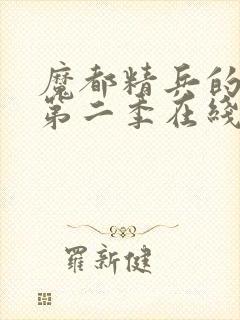 魔都精兵的
第二季在綫
羅新健